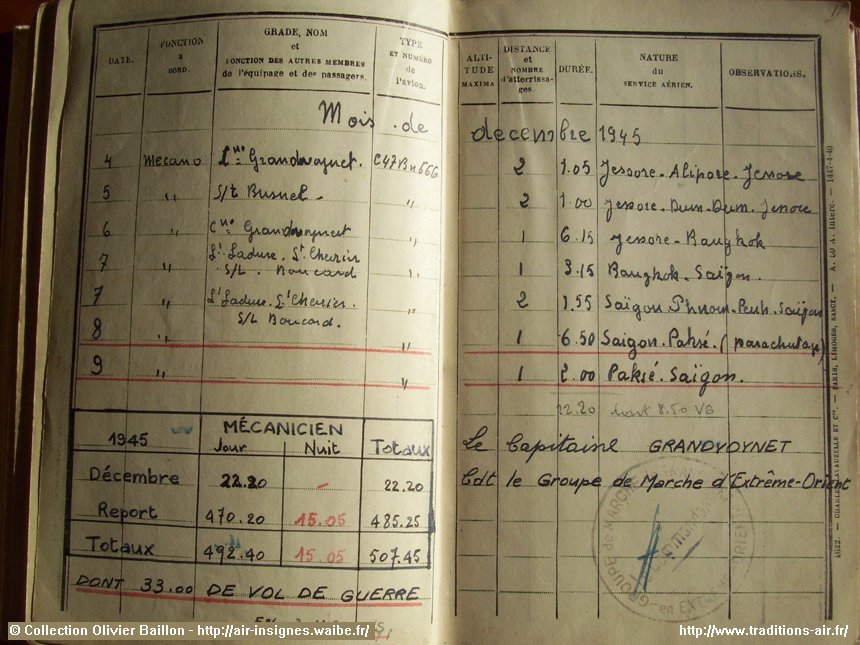 DATE.
FONCTION
à
BORD.
GRADE, NOM
et
FONCTION DES AUTRES MEMBRES
de l'équipage et des passagers.
TYPE
ET NUMÉRO
de
l'avion.
Mois de
4 Mecano Grandvoynet C47 Bn 666
5 " S/t Busnel "
6 " Cne Grandvoynet "
7 " Lt Ladure. "
S/L. Boucard
7 " Lt Ladure. "
S/L Boucard.
8 " "
9 "
1945 MÉCANICIEN
Jour Nuit Totaux
Décembre 22.20 - 22.20
Report 470.20 15.05 485.25
Totaux 492.40 15.05 507.45
DONT 33.00 DE VOL DE GUERRE
ALTI-
TUDE
MAXIMA
DISTANCE
et
NOMBRE
d'atterrissa-
ges.
DURÉE.
NATURE
du
SERVICE AÉRIEN.
OBSERVATIONS.
decembre 1945
2 1.05 Jessore-Alipore-Jessore
2 1.00 Jessore-Dum-Dum-Jessore
1 6.15 Jessore-Bangkok
1 3.15 Bangkok-Saïgon.
2 1.55 Saïgon-Phnom-Penh-Saïgon
1 6.50 Saigon-Paksé. (parachutage)
1 2.00 Paksé-Saïgon.
22.20 dont 8.50 VG
Le Capitaine GRANDVOYNET
Cdt le Groupe de Marche d'Extrême-Orient
GROUPE de MARCHE en EXTRÊME ORIENT
4022. — CHARLES-LAVAUZELLE ET Cie. — PARIS, LIMOGES, NANCY. — A. 10 A. Interc. — 1447-4-40
© Collection Olivier Baillon - http://air-insignes.waibe.fr/
http://www.traditions-air.fr/